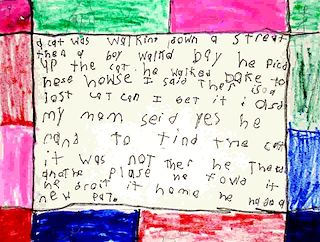 a cat was walking down a street
then a boy walkd bay he picd
up the cat. he walked bake to
hose howse I said Ther is a
lost cat can I get it i
my mom seid yes he
rand to find the cat
it was not ther he
anothe plase he fowd it
he it home he had a
new pat.